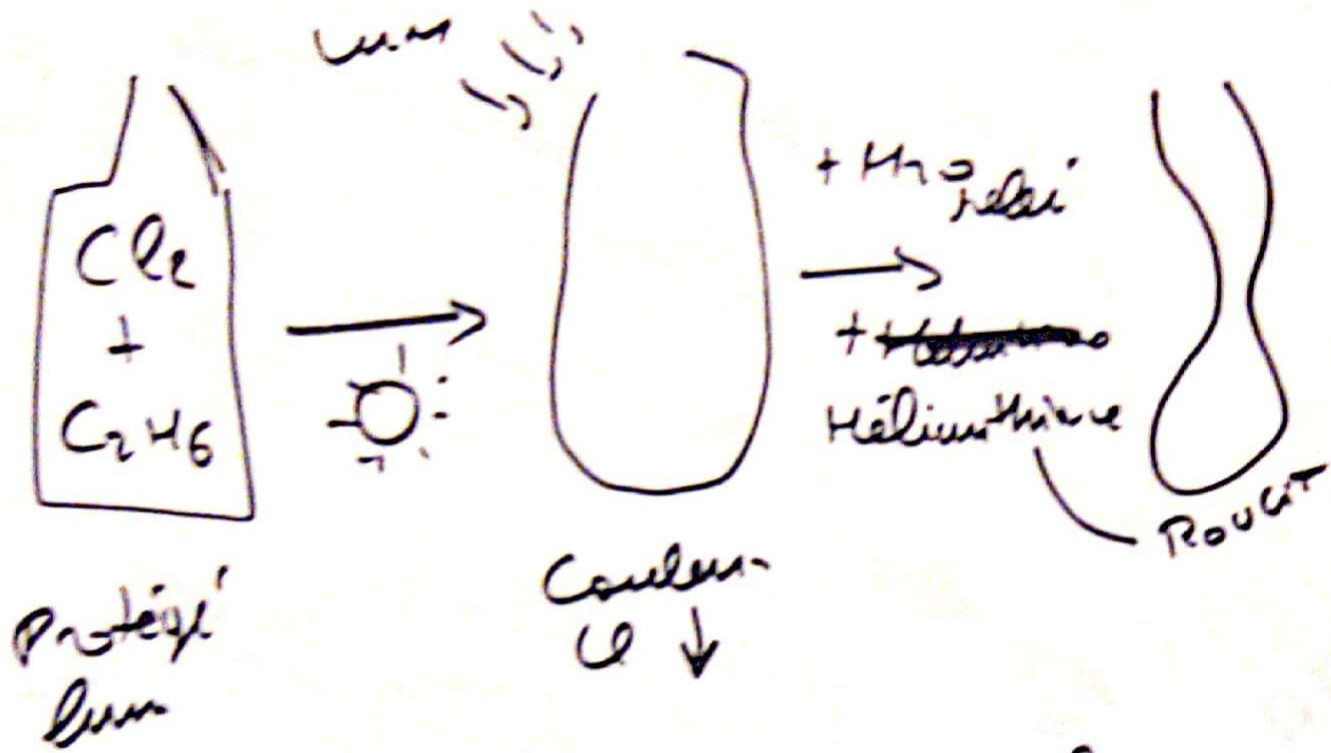 Lum
Cl2
+
C2H6
Protégé
lum
Couleur
↓
+ H2O
+
Hélianthine
Rougit